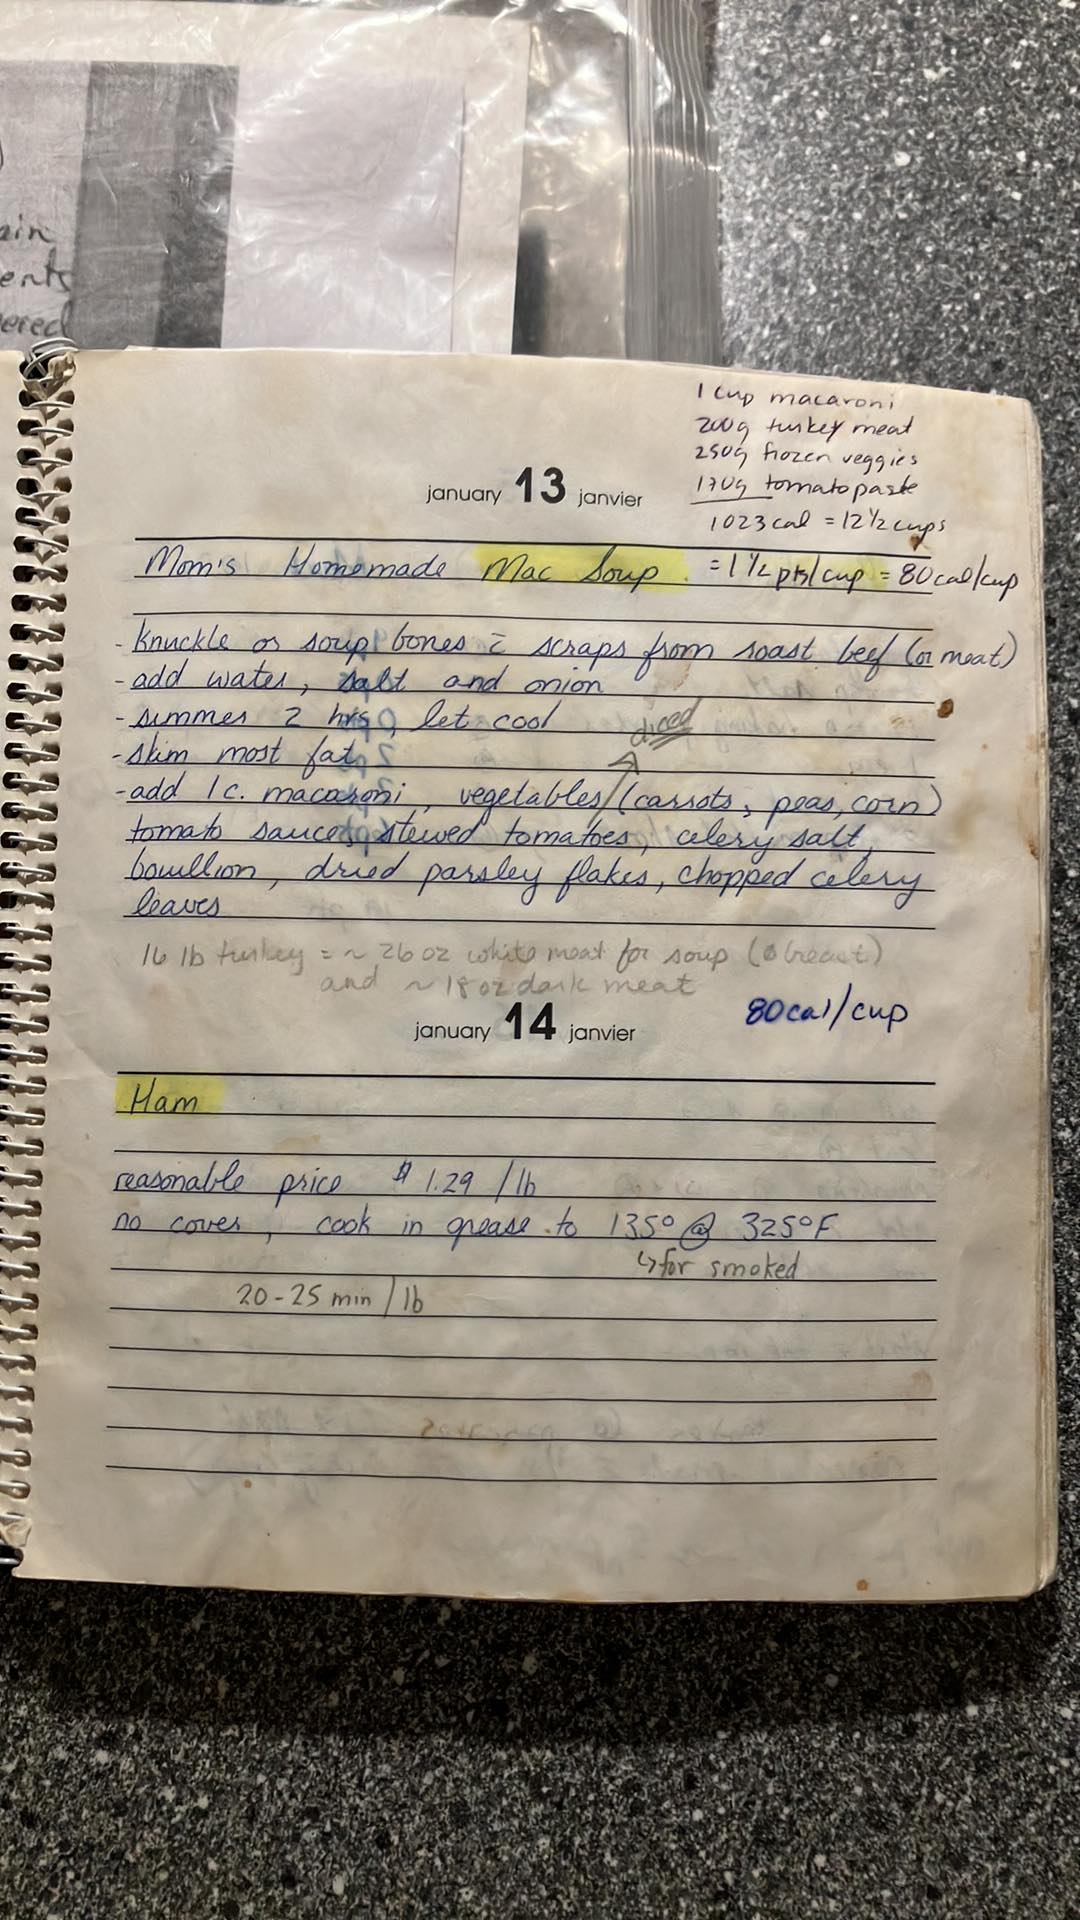 ain
ents
ered
1 cup macaroni
200g turkey meat
250g frozen veggies
170g tomato paste
1023 cal = 12 1/2 cups
january 13 janvier
Mom's Homemade Mac Soup = 1 1/2 pts/cup = 80 cal/cup
- Knuckle or soup bones c̄ scraps from roast beef (or meat)
- add water, salt and onion
- simmer 2 hrs, let cool
diced
- skim most fat
- add 1 c. macaroni, vegetables (carrots, peas, corn)
tomato sauce, stewed tomatoes, celery salt,
bouillion, dried parsley flakes, chopped celery
leaves
16 lb turkey = ~ 26 oz white meat for soup (breast)
and ~ 18 oz dark meat
january 14 janvier 80 cal/cup
Ham
reasonable price $ 1.29 / lb
no cover, cook in grease to 135° @ 325°F
↳ for smoked
20-25 min / lb